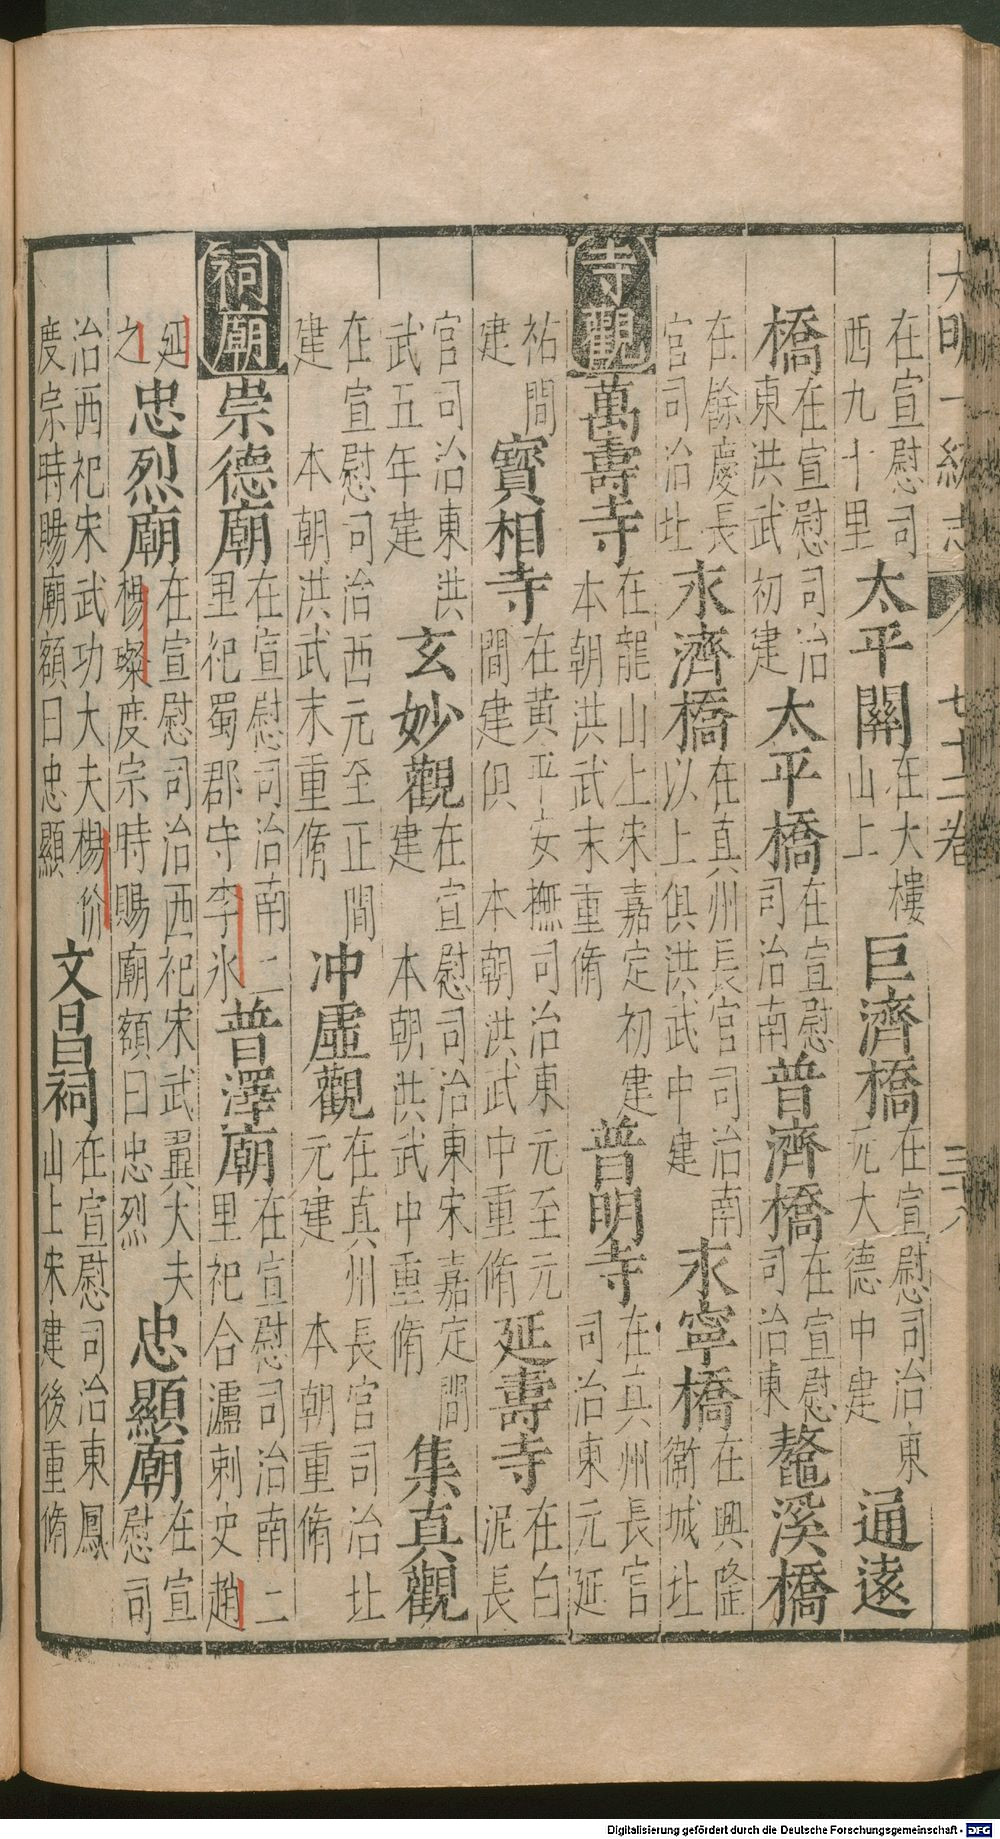 大明一統志 七十二卷
在宣慰司西九十里 太平關 在大樓山上 巨濟橋 在宣慰司治東元大德中建 通遠
橋 在宣慰司治東洪武初建 太平橋 在宣慰司治南 普濟橋 在宣慰司治東 鼇溪橋
在餘慶長官司治北 永濟橋 在真州長官司治南以上俱洪武中建 永寧橋 在興隆衛城北
寺觀 萬壽寺 在龍山上宋嘉定初建 本朝洪武末重脩 普明寺 在真州長官司治東元延
祐間建 寳相寺 在黃平安撫司治東元至元間建俱 本朝洪武中重脩 延壽寺 在白泥長
官司治東洪武五年建 玄妙觀 在宣慰司治東宋嘉定間建 本朝洪武中重脩 集真觀
在宣慰司治西元至正間建 本朝洪武末重脩 冲虛觀 在真州長官司治北元建 本朝重脩
祠廟 崇德廟 在宣慰司治南二里祀蜀郡守李氷 普澤廟 在宣慰司治南二里祀合瀘刺史趙
延之 忠烈廟 在宣慰司治西祀宋武翼大夫楊粲度宗時賜廟額曰忠烈 忠顯廟 在宣慰司
治西祀宋武功大夫楊价度宗時賜廟額曰忠顯 文昌祠 在宣慰司治東鳳山上宋建後重脩
Digitalisierung gefördert durch die Deutsche Forschungsgemeinschaft - DFG